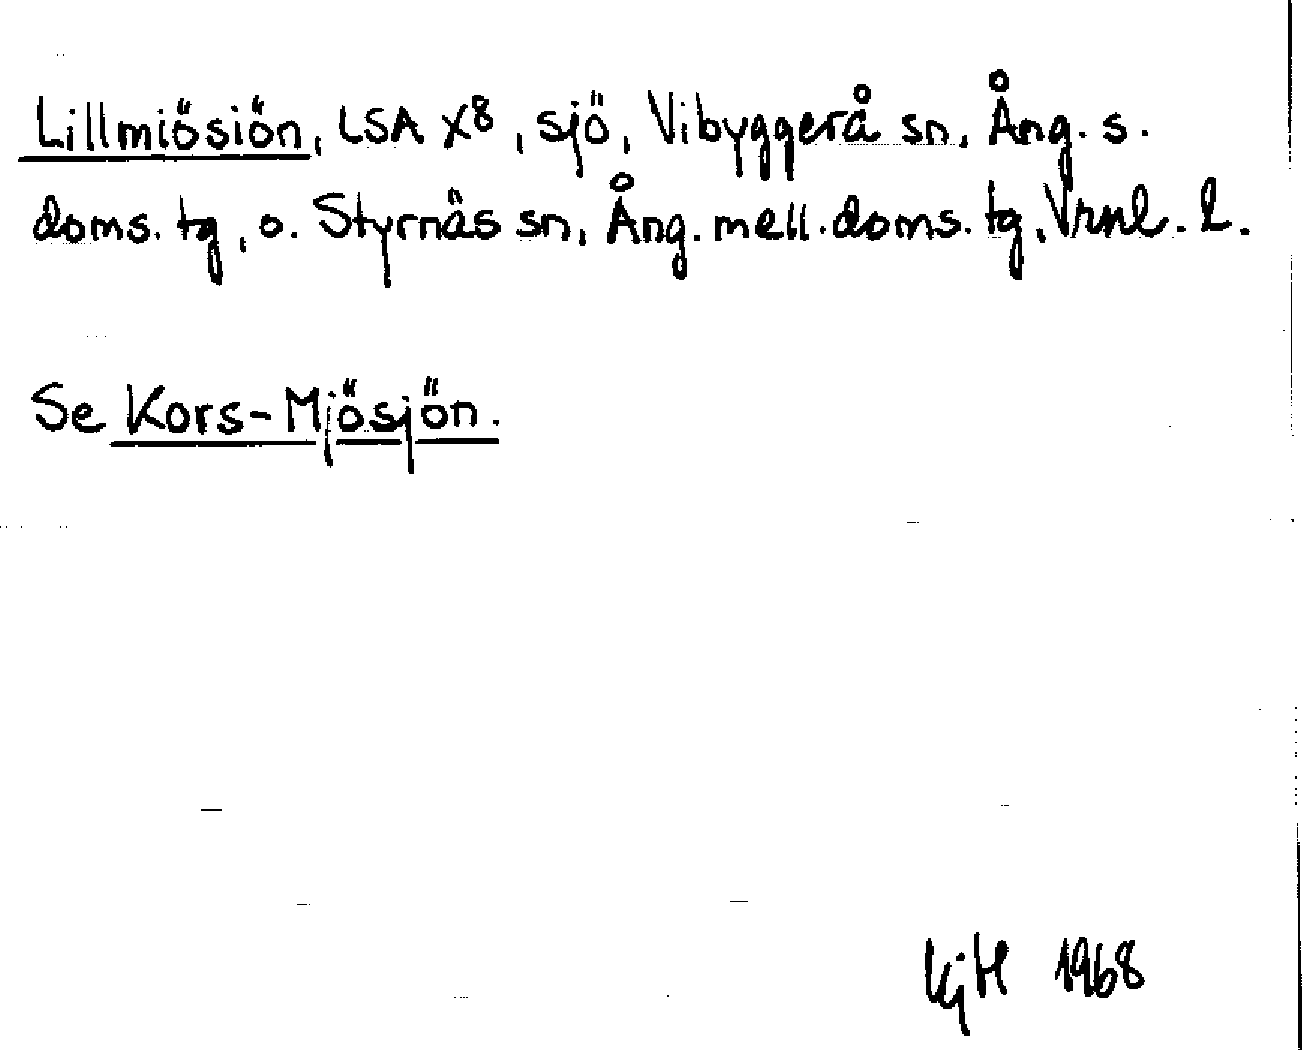 Lillmiösiön, LSA X⁸, sjö, Vibyggerå sn, Ång. s.
doms. tg, o. Styrnäs sn, Ång. mell. doms. tg, Vrnl. l.
Se Kors-Mjösjön.
KjH 1968